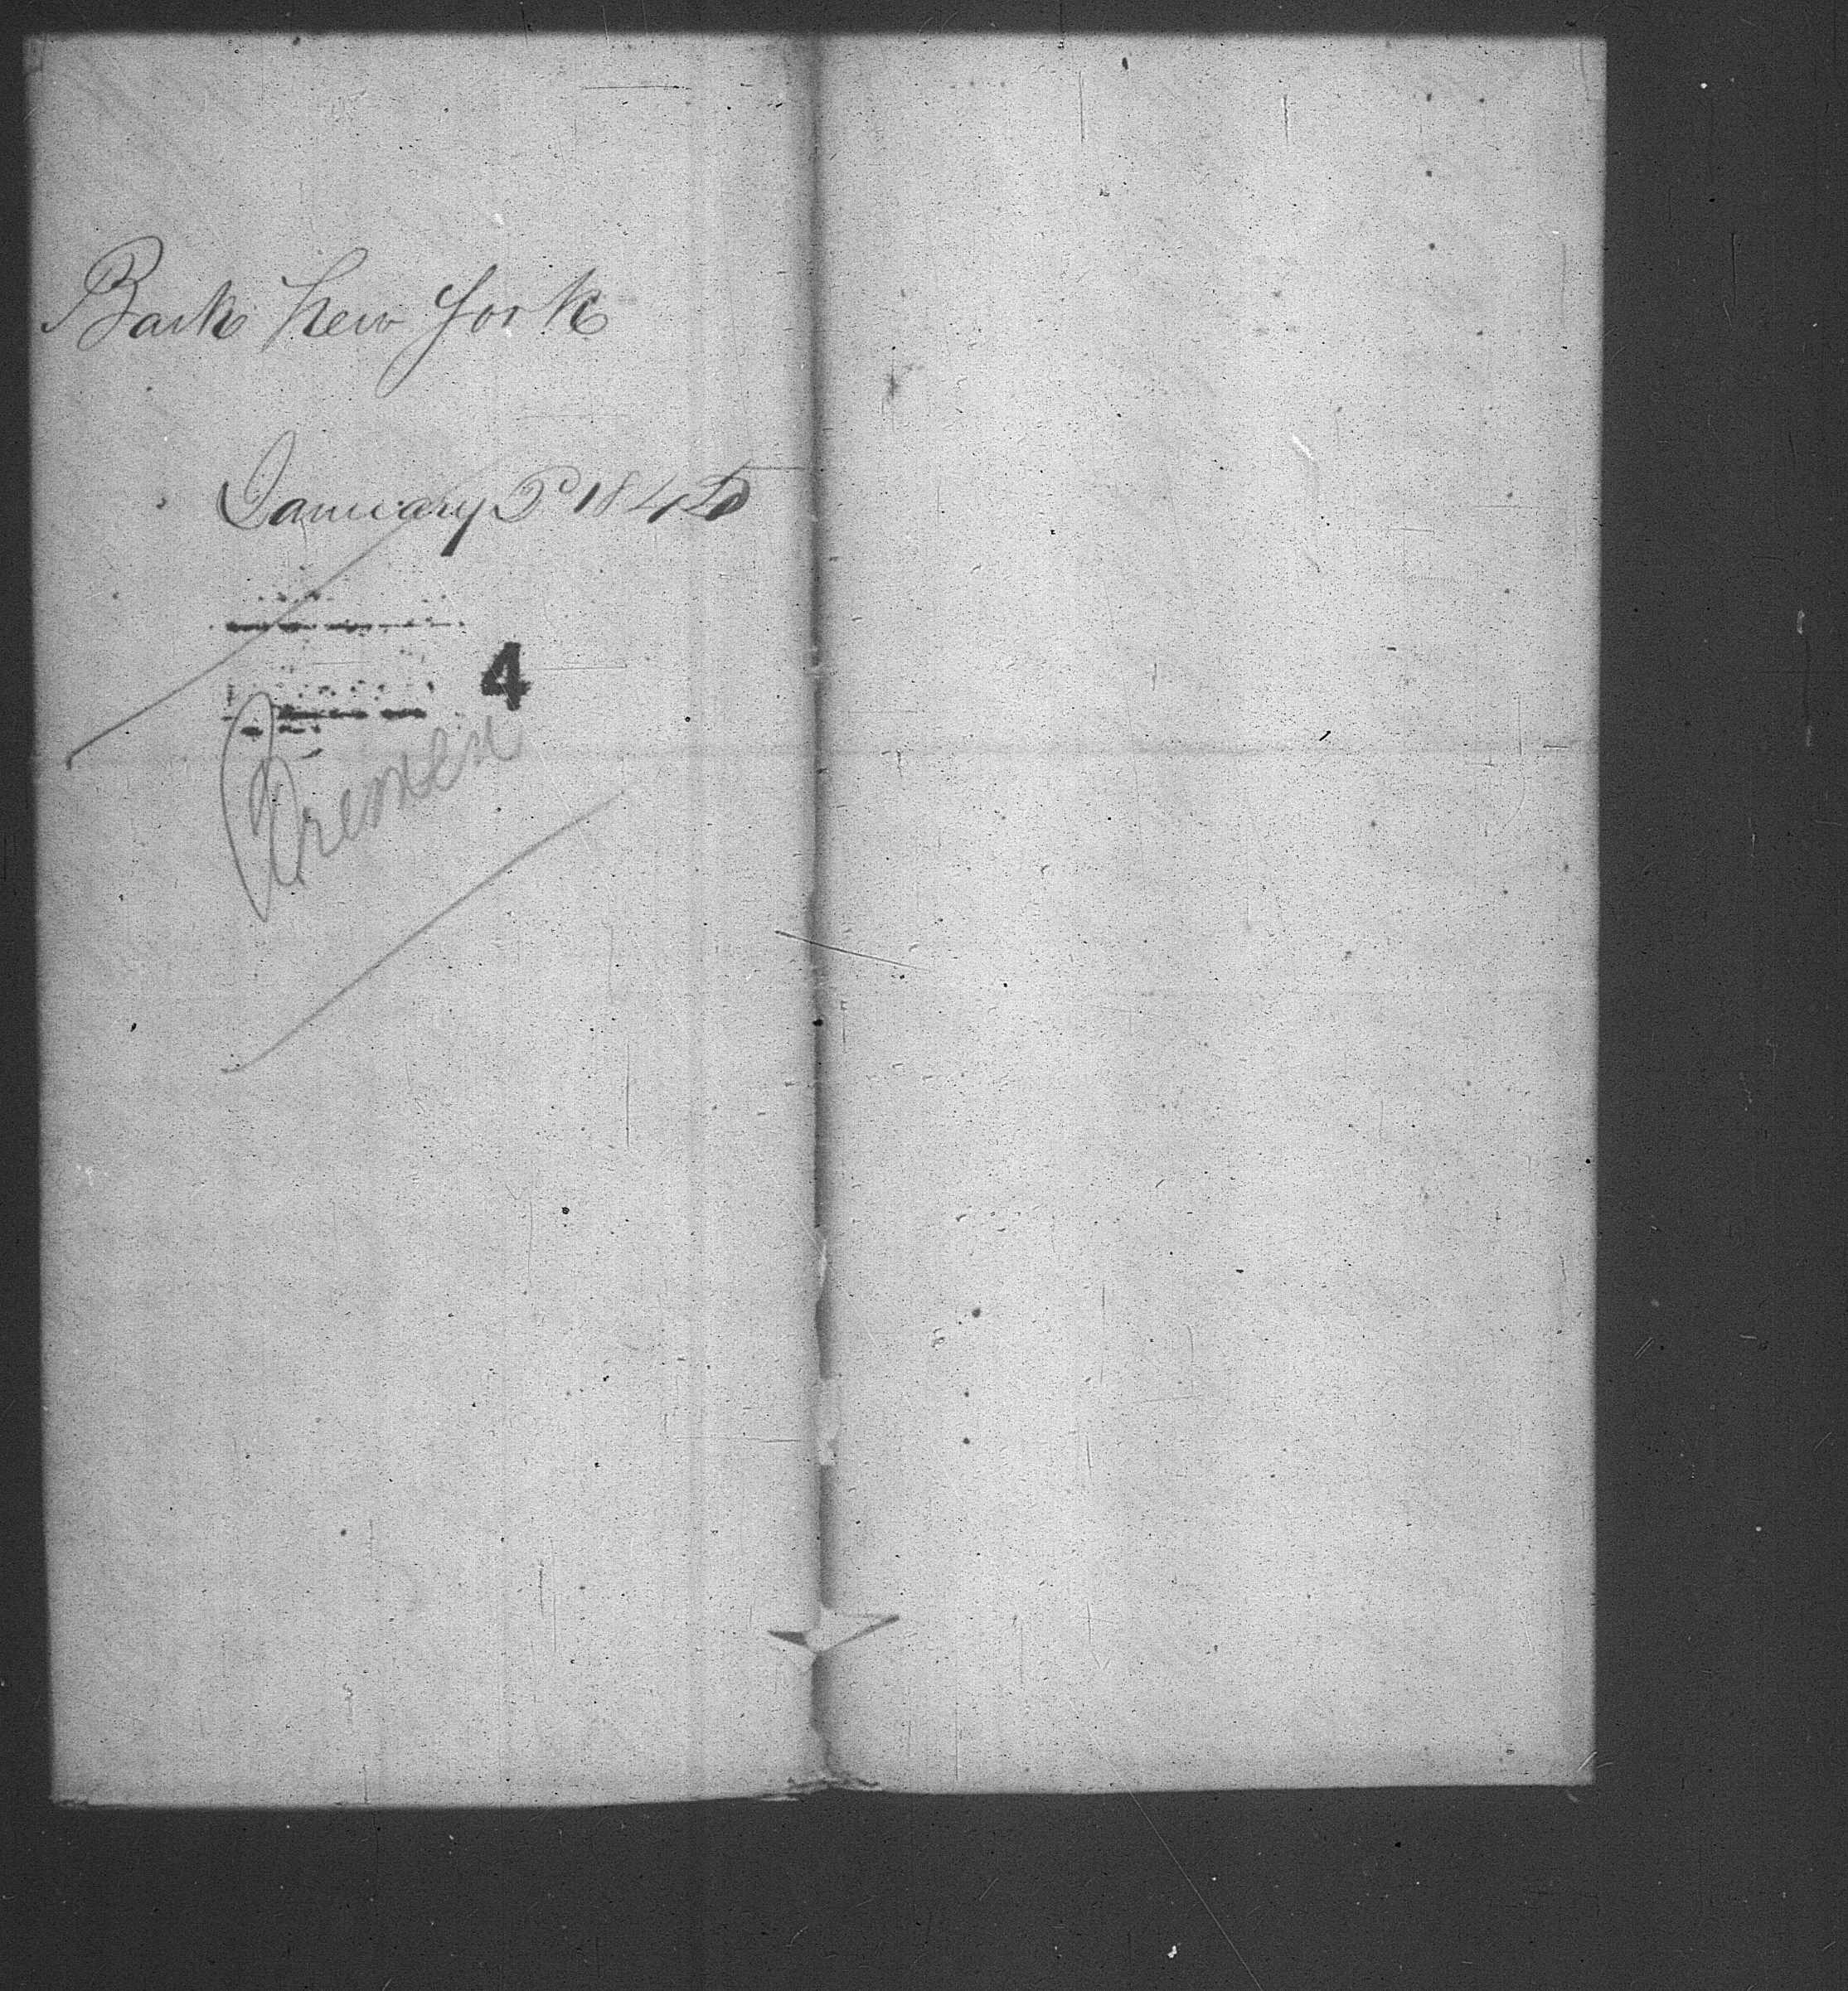 Bark New York
January 2 1845
4
Bremen